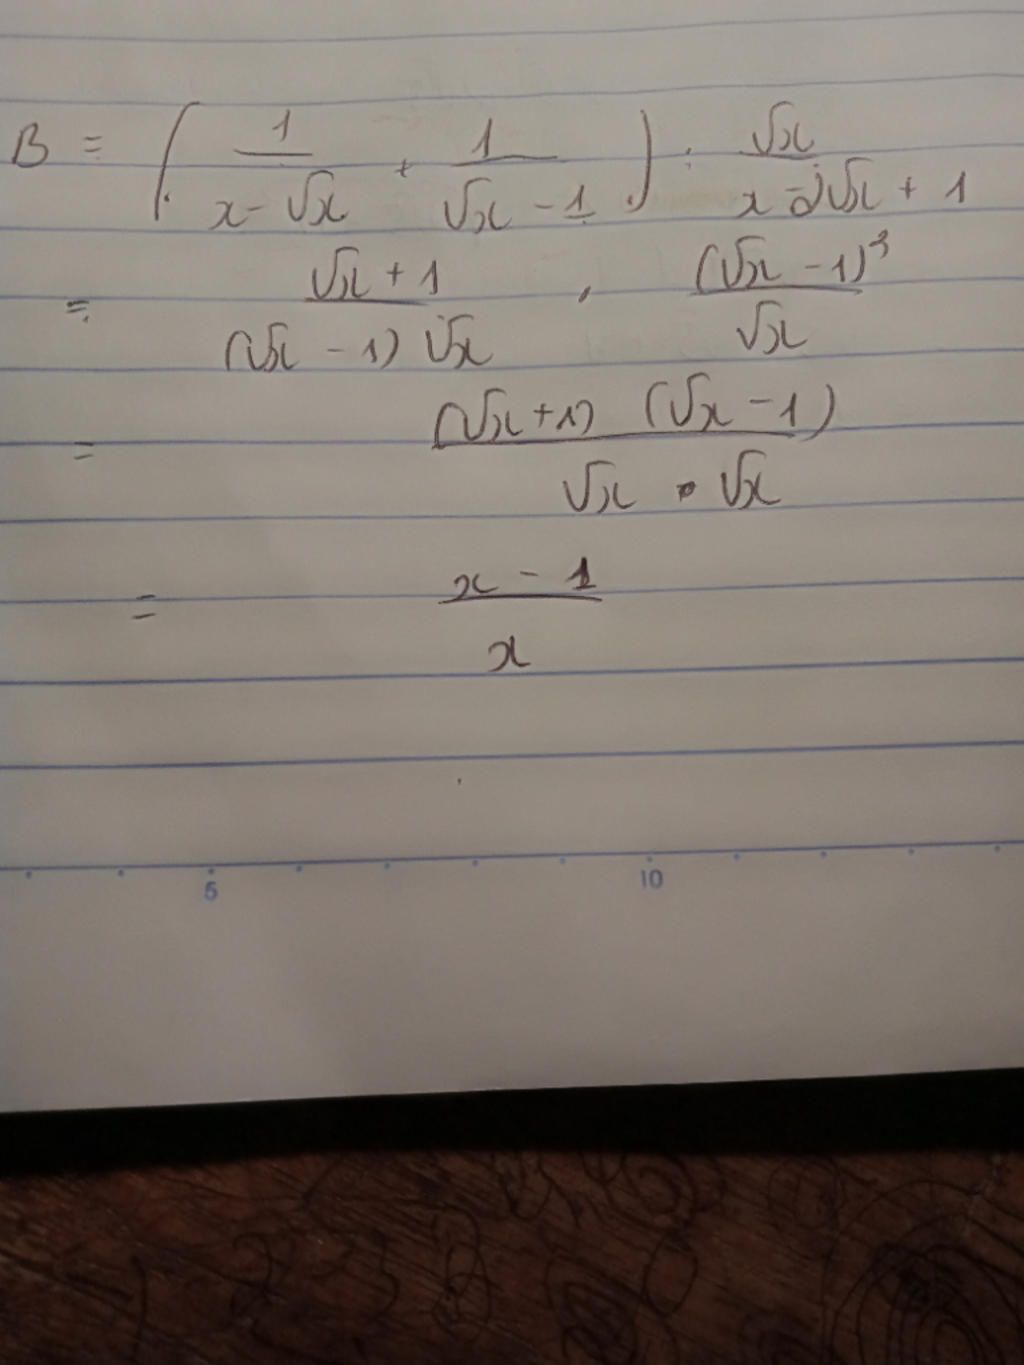 B = ( 1/(x - √x) + 1/(√x - 1) ) : √x/(x - 2√x + 1)
= (√x + 1)/((√x - 1) √x) . (√x - 1)³/√x
= (√x + 1) (√x - 1)/(√x . √x)
= (x - 1)/x
5 10